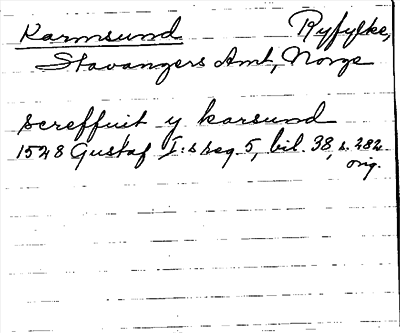 Karmsund Ryfylke,
Stavangers Amt, Norge
screffuit y karsund
1528 Gustaf I:s reg. 5, bil. 38, s. 282
orig.